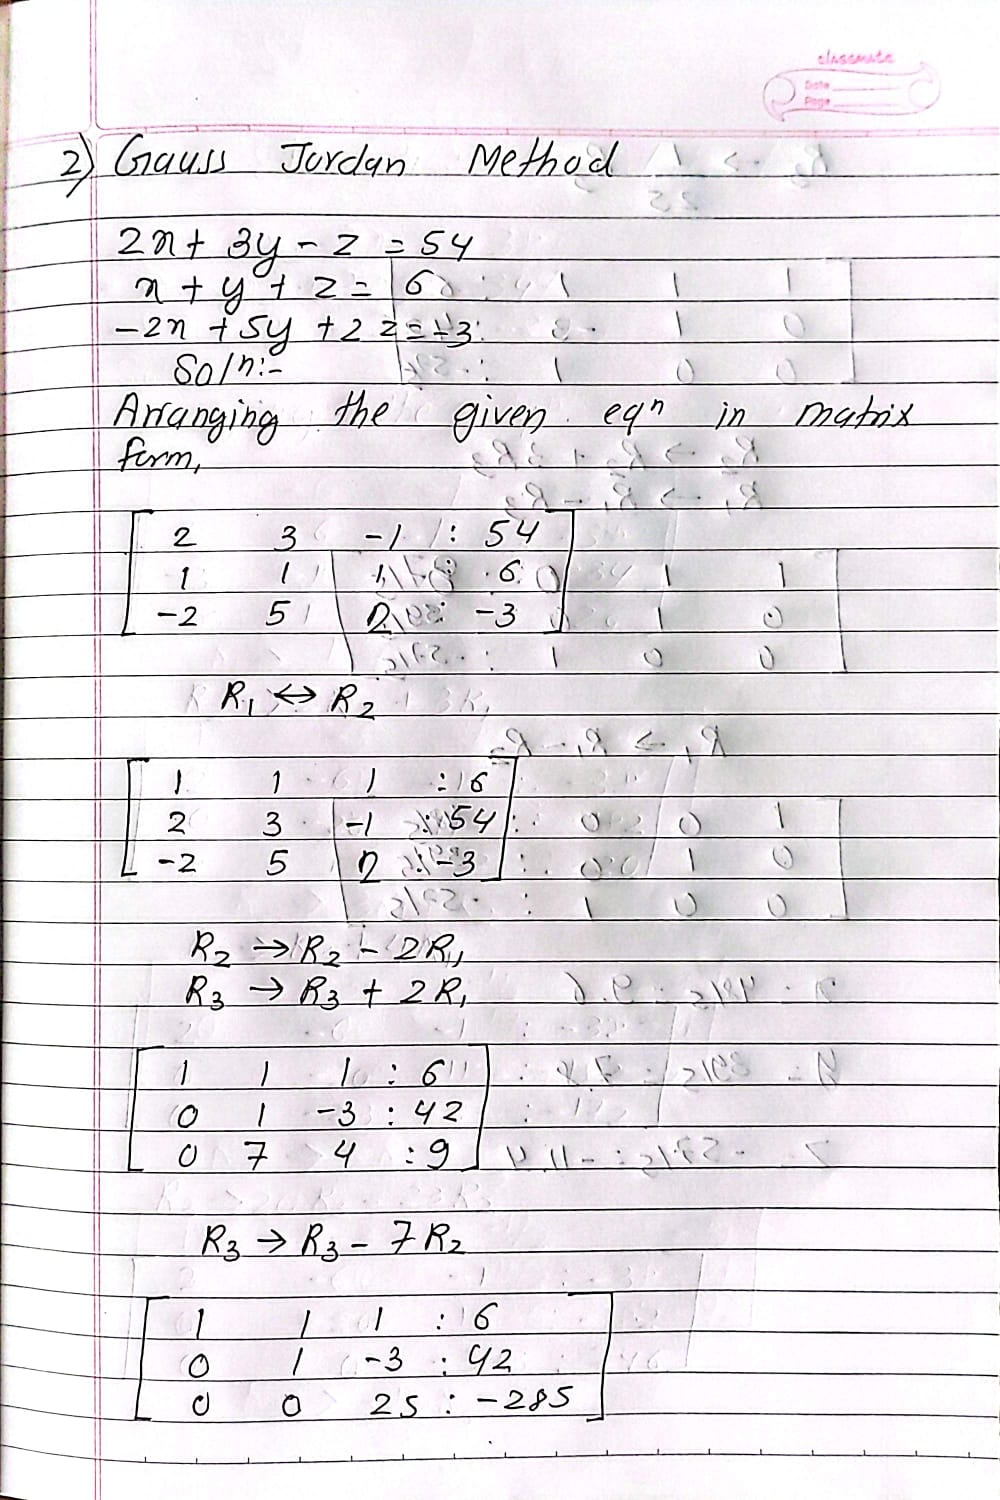 classmate
Date
Page
2) Gauss Jordan Method
2x + 3y - z = 54
x + y + z = 6
-2x + 5y + 2z = -3
Soln:-
Arranging the given eqn in matrix
form,
2 3 -1 : 54
1 1 1 : 6
-2 5 2 : -3
R1 ↔ R2
1 1 1 : 6
2 3 -1 : 54
-2 5 2 : -3
R2 → R2 - 2R1,
R3 → R3 + 2R1
1 1 1 : 6
0 1 -3 : 42
0 7 4 : 9
R3 → R3 - 7R2
1 1 1 : 6
0 1 -3 : 42
0 0 25 : -285